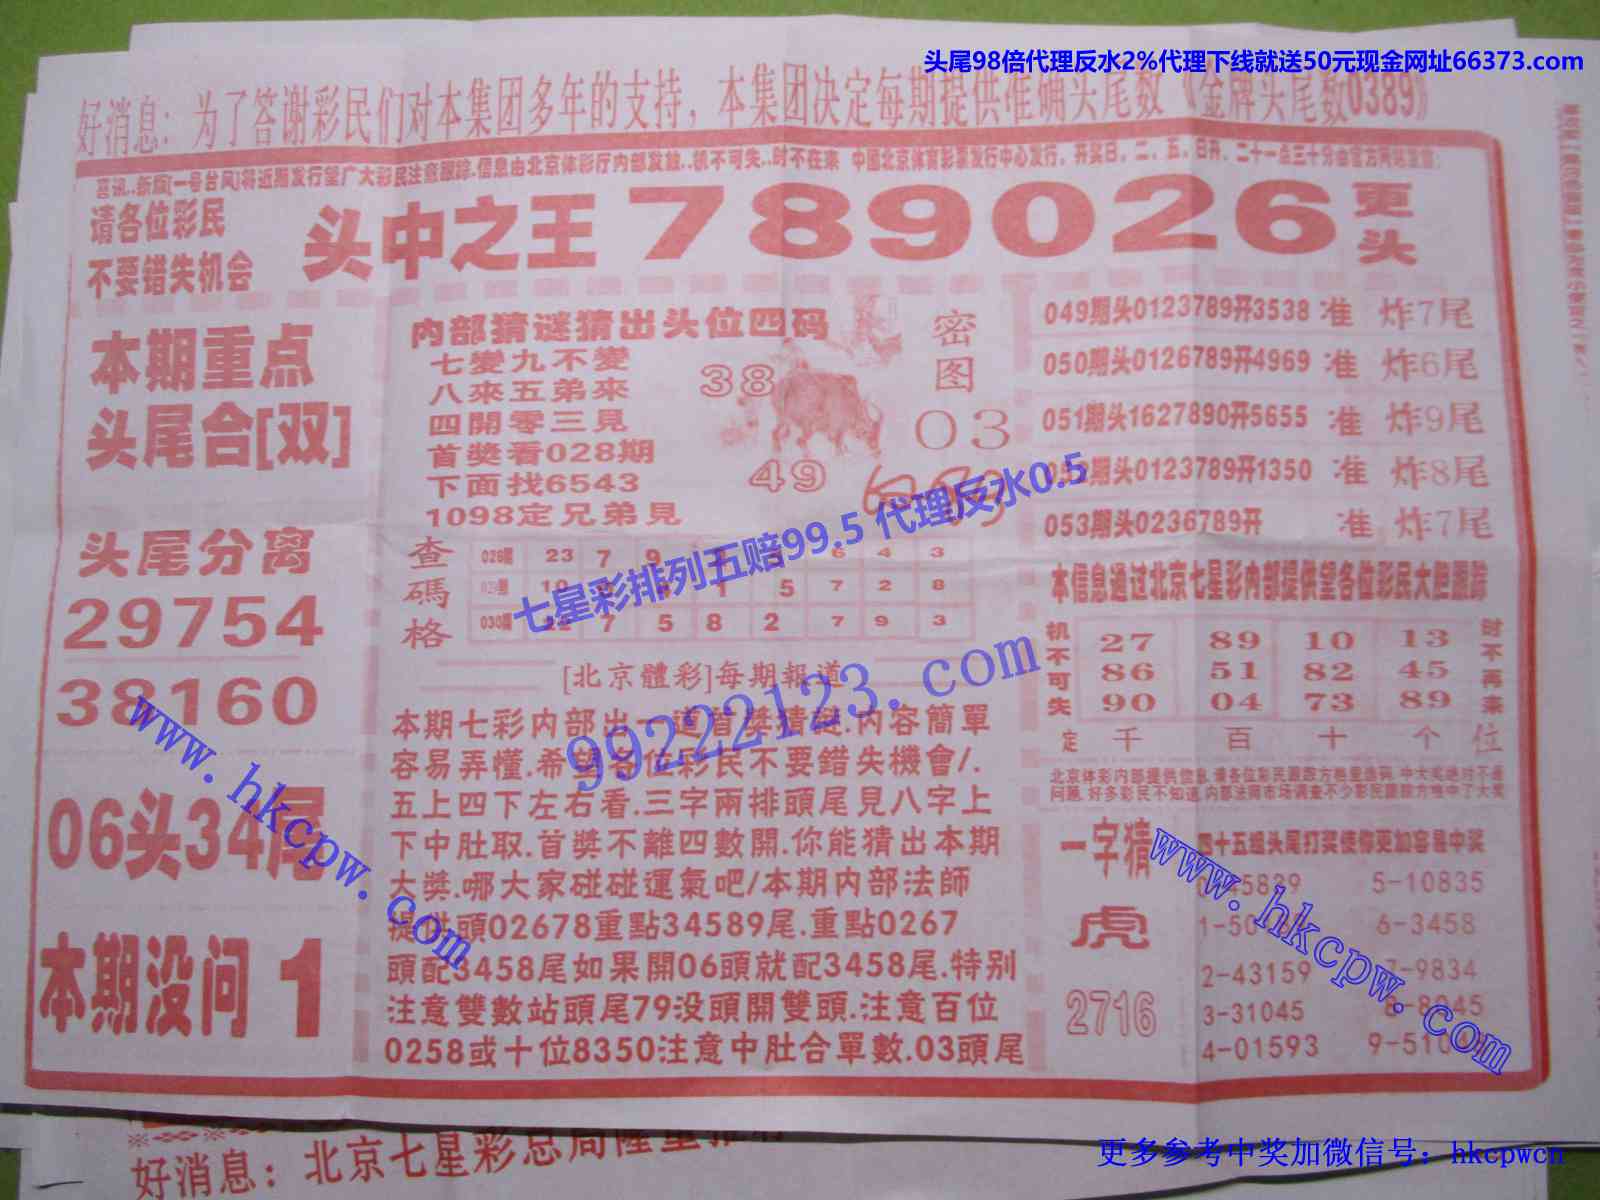 头尾98倍代理反水2%代理下线就送50元现金网址66373.com
好消息：为了答谢彩民们对本集团多年的支持，本集团决定每期提供准确头尾数《金牌头尾数0389》
喜讯..新版[一号台风]将近期发行望广大彩民注意跟踪.信息由北京体彩厅内部发放..机不可失..时不在来 中国北京体育彩票发行中心发行，开奖日，二、五、日开，二十一点三十分由官方网站
请各位彩民
不要错失机会
头中之王 789026 更头
本期重点
头尾合[双]
头尾分离
29754
38160
06头34尾
本期没问 1
内部猜谜猜出头位四码
七變九不變
八來五弟來
四開零三見
首獎看028期
下面找6543
1098定兄弟見
38
49
密图
03
查碼格
028期 23 7 9 6 4 3
1 5 7 2 8
030期 22 7 5 8 2 7 9 3
[北京體彩]每期報道
本期七彩内部出一道首獎猜谜.内容簡單
容易弄懂.希望各位彩民不要錯失機會/.
五上四下左右看.三字兩排頭尾見八字上
下中肚取.首獎不離四數開.你能猜出本期
大獎.哪大家碰碰運氣吧/本期内部法師
提供頭02678重點34589尾.重點0267
頭配3458尾如果開06頭就配3458尾.特别
注意雙數站頭尾79没頭開雙頭.注意百位
0258或十位8350注意中肚合單數.03頭尾
049期头0123789开3538 准 炸7尾
050期头0126789开4969 准 炸6尾
051期头1627890开5655 准 炸9尾
期头0123789开1350 准 炸8尾
053期头0236789开 准 炸7尾
本信息通过北京七星彩内部提供望各位彩民大胆跟踪
机不可失
27 89 10 13
86 51 82 45
90 04 73 89
时不再来
定 千 百 十 个 位
北京体彩内部提供信息.请各位彩民跟踪方格里选码.中大奖绝对不成
问题.好多彩民不知道.内部法网市场调查不少彩民跟踪方格中了大奖
一字猜
虎
2716
四十五组头尾打奖使你更加容易中奖
5-10835
6-3458
2-43159 7-9834
3-31045 8-8045
4-01593
七星彩排列五赔99.5 代理反水0.5
99222123.com
www.hkcpw.com
www.hkcpw.com
好消息：北京七星彩总局隆重
更多参考中奖加微信号：hkcpwcn